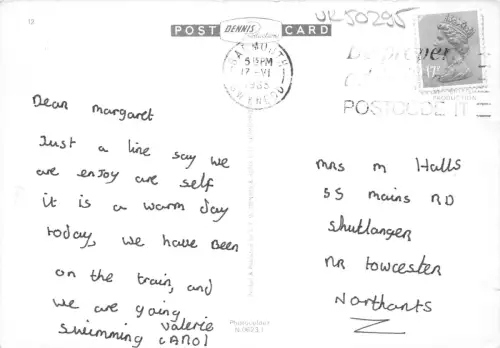 13
POST DENNIS Productions CARD
UK50295
5 15PM
17-VI
GWYNEDD
POSTCODE IT
17
Dear margaret
Just a line say we
are enjoy are self
it is a warm day
today, we have been
on the train, and
we are going
swimming valerie
carol
mrs m Halls
55 mains RD
Shutlanger
NR towcester
Northants
Photocolour